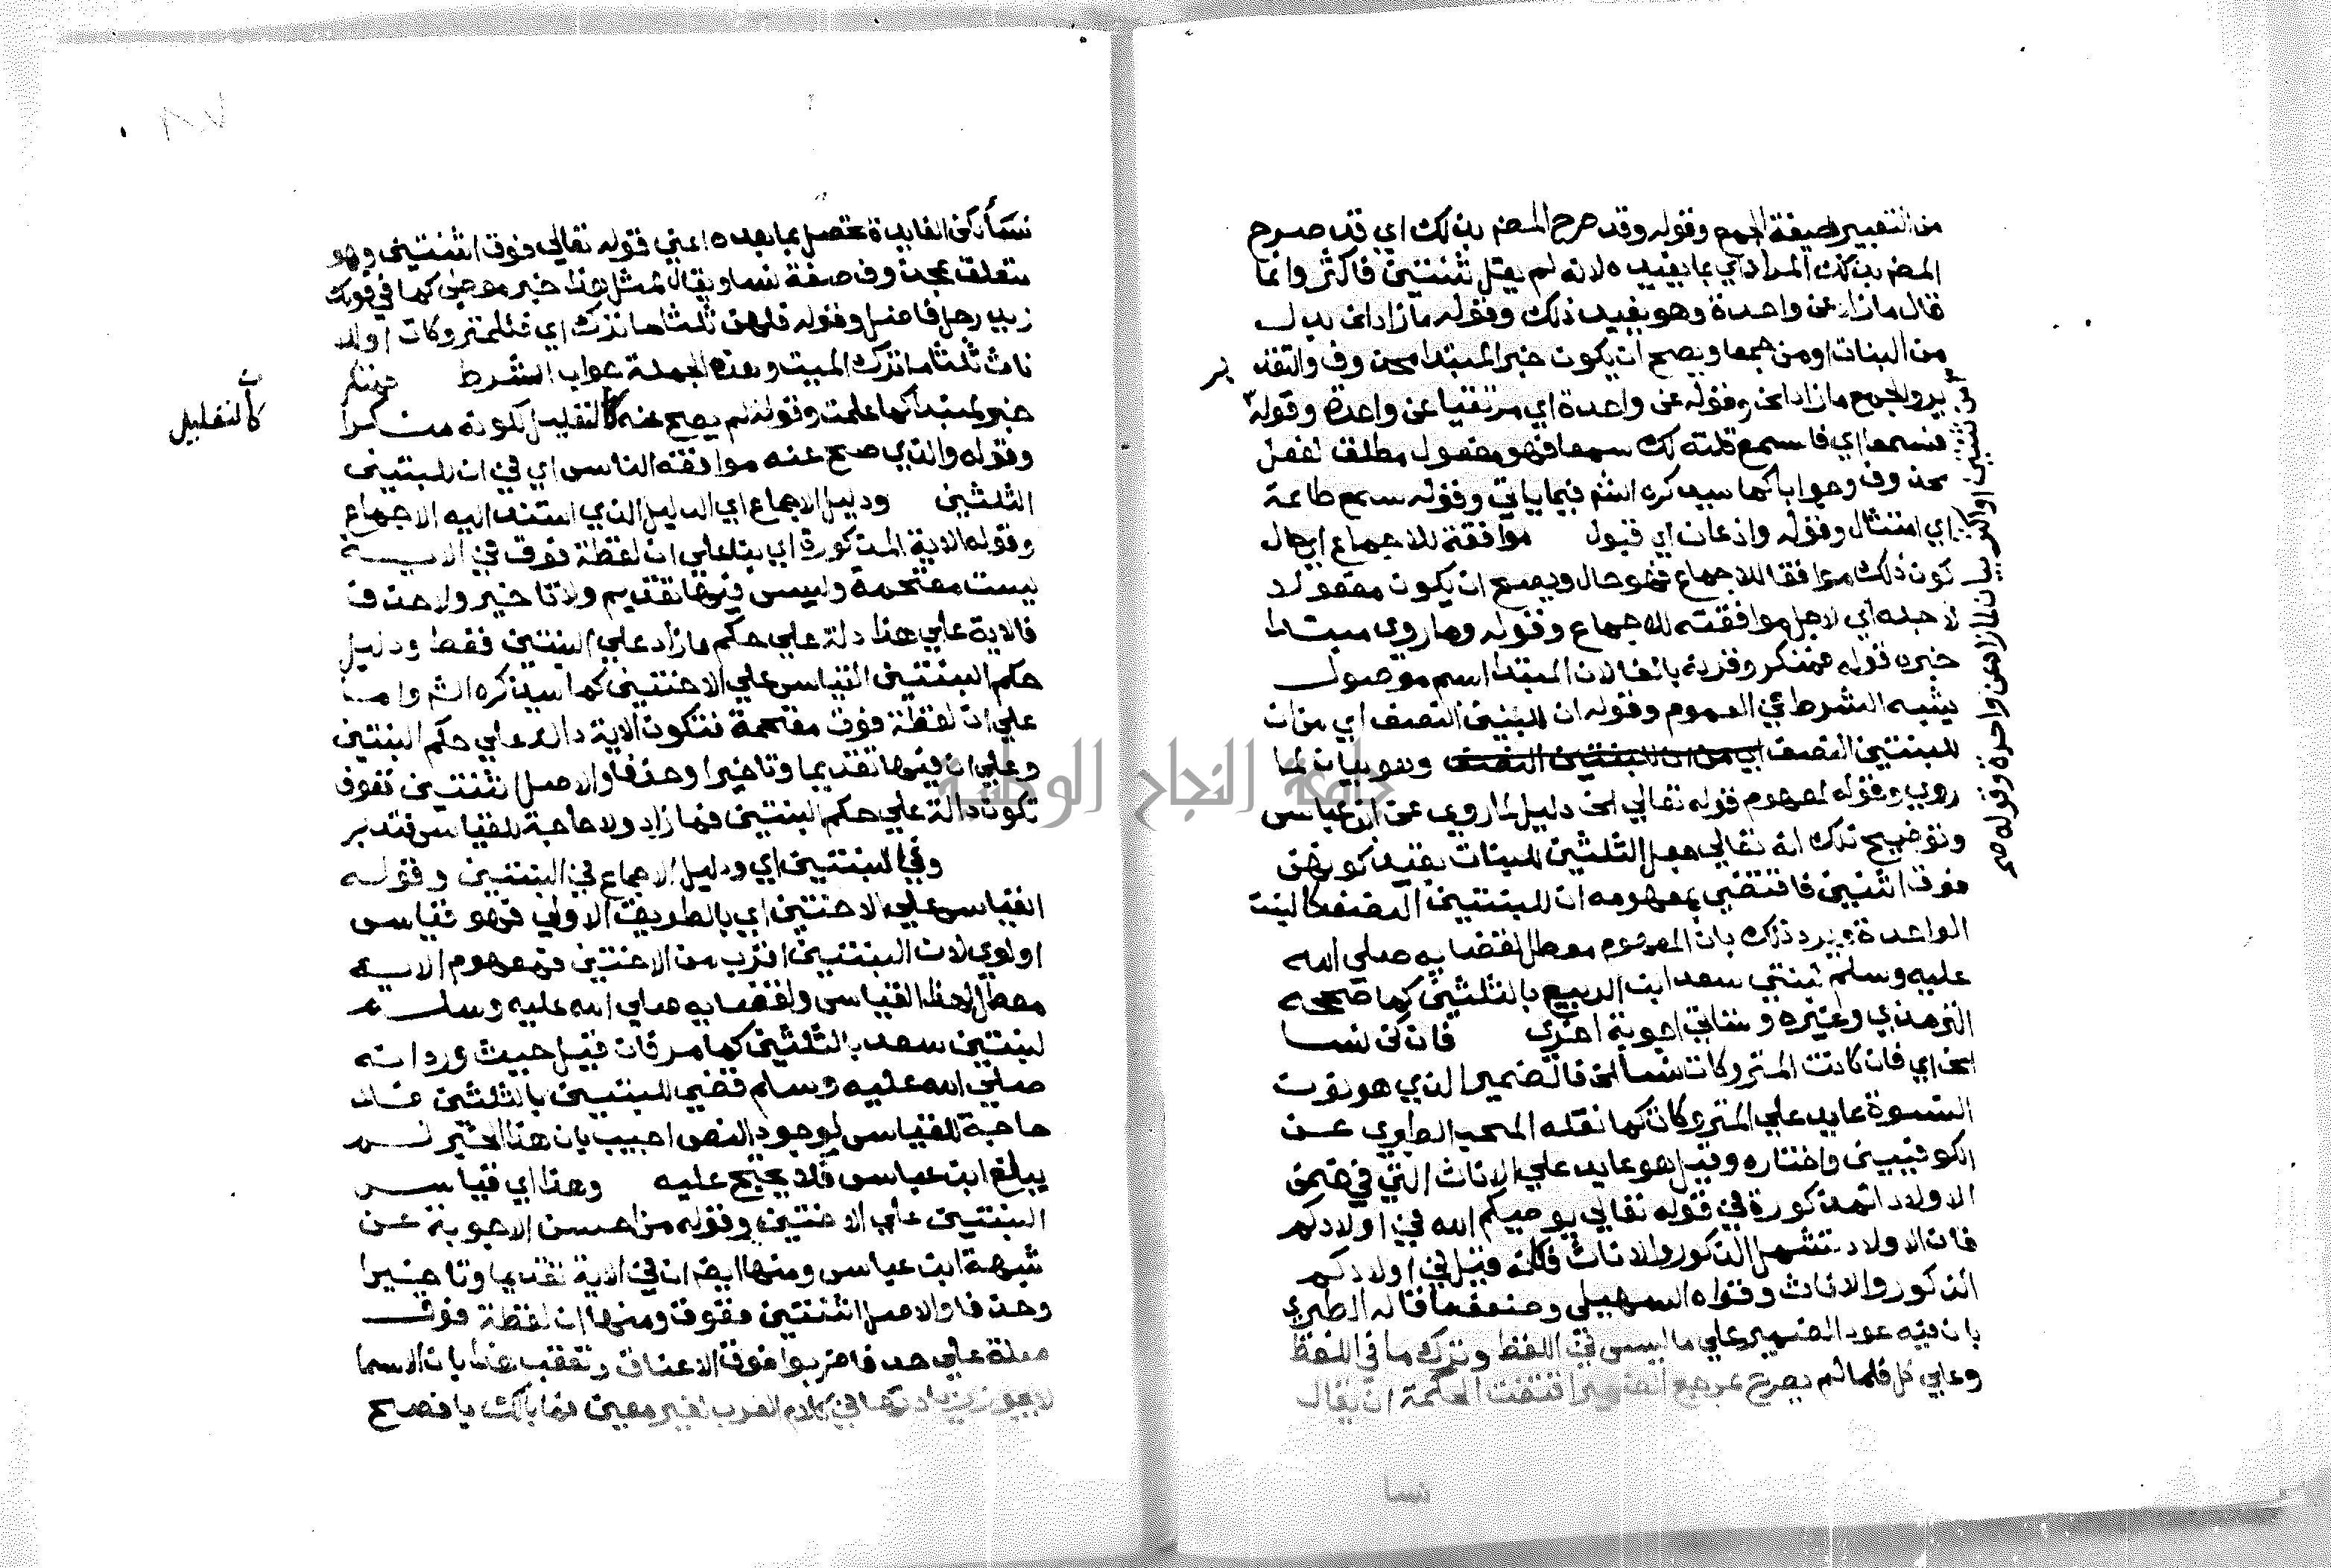 من التعبير بصيغة الجمع وقوله وقد صرح المصـ بذلك اي قد صرح
المصـ بذلك المراد اي بما يفيده لانه لم يقل ثنتين فاكثر وانما
قال ما زاد عن واحدة وهو يفيد ذلك وقوله ما زاد الخ بدل
من البنات او من جمعا ويصح ان يكون خبر المبتدا محذوف والتقد
ير والجمع ما زاد الخ وقوله عن واحدة اي مرتقيا عن واحدة وقوله
فسمعا اي فاسمع قلته لك سمعا فهو مفعول مطلق لفعل
محذوف وجوابا كما سيذكره الشم فيما ياتي وقوله سمع طاعة
اي امتثال وقوله واذعان اي قبول موافقة للاجماع اي حال
كون ذلك موافقا للاجماع فهو حال ويصح ان يكون مفعولا
لاجله اي لاجل موافقته للاجماع وقوله وما روي مبتدا
خبره قوله فمنكر وقرنه بالفا لان المبتدا اسم موصول
يشبه الشرط في العموم وقوله ان للبنتين النصف اي من ان
للبنتين النصف اي من ان للبنتين النصف وهو بيان لما
روي وقوله لمفهوم قوله تعالي الخ دليل لما روي عن ابن عباس
وتوضيح ذلك انه تعالي جعل الثلثين للبنات بقيد كونهن
فوق اثنتين فاقتضي بمفهومه ان للبنتين النصف كالبنت
الواحدة ويرد ذلك بان المفهوم معطل لقضايه صلي الله
عليه وسلم لبنتي سعد ابن الربيع بالثلثين كما صححه
الترمذي وغيره وستاتي اجوبة اخري فان كن نسا
الخ اي فان كانت المتروكات نسا الخ فالضمير الذي هو نون
النسوة عايد علي المتروكات كما نقله المحب الطبري عن
الكوفيين واختاره وقيل هو عايد علي الاناث التي في ضمن
الاولاد المذكورة في قوله تعالي يوصيكم الله في اولادكم
فان الاولاد تشمل الذكور والاناث فكانه قيل في اولادكم
الذكور والاناث وقواه السهيلي وضعف ما قاله الطبري
بان فيه عود الضمير علي ما ليس في اللفظ وترك ما في اللفظ
وعلي كل فلما لم يصرح بمرجع الضمير اقتضت الحكمة ان يقال
نسا
بر
ثنتين او اكثر
ن ما زاد عن واحدة وقوله
نسا لكن الفايدة تحصل بما بعده اعني قوله تعالي فوق اثنتين وهو
متعلق بمحذوف صفة نسا ويقال لمثل هذا خبر موطي كما في قولك
زيد رجل فاضل وقوله فلهن ثلثا ما ترك اي فللمتروكات او الا
ناث ثلثا ما ترك الميت وهذه الجملة جواب الشرط فمنكر
خبر لمبتدا كما علمت وقوله لم يصح عنه كالتعليل لكونه منكرا
وقوله والذي صح عنه موافقة الناس اي في ان للبنتين
الثلثين ودليل الاجماع اي الدليل الذي استند اليه الاجماع
وقوله الاية المذكورة اي بنا علي ان لفظة فوق في الايـة
ليست مقتحمة وليس فيها تقديم ولا تاخير ولا حذف
فالاية علي هذا دلة علي حكم ما زاد علي البنتين فقط ودليل
حكم البنتين القياس علي الاختين كما سيذكره الشم واما
علي ان لفظة فوق مقتحمة فتكون الاية دالة علي حكم البنتين
وعلي ان فيها تقديما وتاخيرا وحذفا والاصل اثنتين ففوق
تكون دالة علي حكم البنتين فما زاد ولا حاجة للقياس فتدبر
وفي البنتين اي ودليل الاجماع في البنتين وقوله
القياس علي الاختين اي بالطريق الاولي فهو قياس
اولوي لان البنتين اقرب من الاختين فمفهوم الايـة
معطل لهذا القياس ولقضايه صلي الله عليه وسلم
لبنتين سعد بالثلثين كما مر فان قيل حيث ورد انه
صلي الله عليه وسلم قضي للبنتين بالثلثين فلا
حاجة للقياس لوجود النص اجيب بان هذا الخبر لـم
يبلغ ابن عباس فلا يحتج عليه وهذا اي قياس
البنتين علي الاختين وقوله من احسن الاجوبة عن
شبهة ابن عباس ومنها ايضـ ان في الاية تقديما وتاخيرا
وحذفا والاصل اثنتين ففوق ومنها ان لفظة فوق
صلة علي حد فاضربوا فوق الاعناق وتعقب هذا بان الاسما
لا يجوز زيادتها في كلام العرب لغير معين فما بالك بافصح
كالتعليل
١٨٧
جامعة النجاح الوطنية